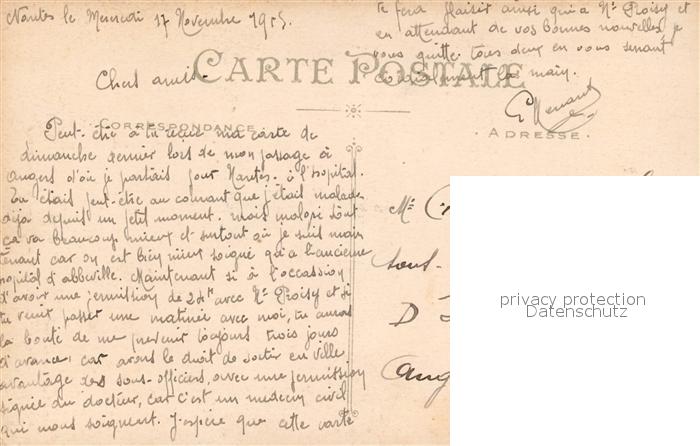 Nantes le Mercredi 17 Novembre 1915.
Chers amis.
CARTE POSTALE
CORRESPONDANCE
Peut-être a tu reçue ma carte de
dimanche dernier lors de mon passage à
angers d'où je partais pour Nantes. à l'hopital.
Tu étais peut-être au courant que j'étais malade
déjà depuis un petit moment. mais malgré tout
ça va beaucoup mieux et surtout où je suis main
tenant car on est bien mieux soigné qu'a l'ancienne
hopital d'abbeville. Maintenant si à l'occassion
d'avoir une permission de 24h avec Mr Proisy et si
tu veux passer une matinée avec moi, tu auras
la bonté de me prévenir toujours trois jours
d'avance, car avons le droit de sortir en ville
avantage des sous-officiers, avec une permission
signée du docteur, car c'est un medecin civil
qui nous soignent. J'espère que cette carte
te fera plaisir ainsi qu'à Mr Proisy et
en attendant de vos bonnes nouvelles je
vous quitte tous deux en vous serrant
la main.
ADRESSE.
Mr
sous-
D
Ang
privacy protection
Datenschutz